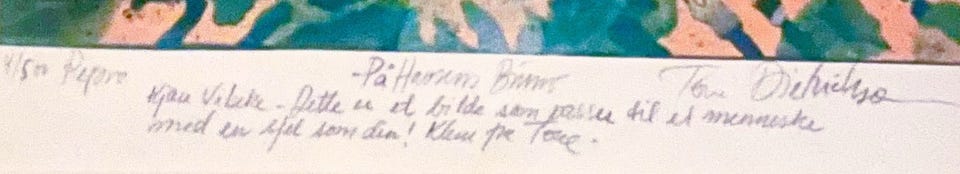 4/500 Repro -På Havsens Bunn- Tone Dietrichson
Kjære Vibeke - Dette er et bilde som passer til et menneske
med en sjel som din! Klem fra Tone.